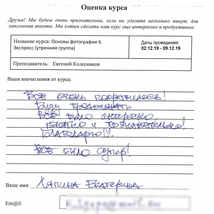 Оценка курса
Друзья! Мы будем очень признательны, если вы уделите несколько минут для
заполнения анкеты. Мы хотим сделать наш курс еще интереснее и продуктивнее.
Название курса: Основы фотографии 6.
Экспресс (утренняя группа)
Дата проведения:
02.12.19 - 09.12.19
Преподаватель: Евгений Колесников
Ваши впечатления от курса:
Всё очень понравилось!
Буду
Всё было интересно,
понятно и познавательно!
Благодарю!!!
Всё было супер!
Ваше имя Хапина Екатерина
Email: